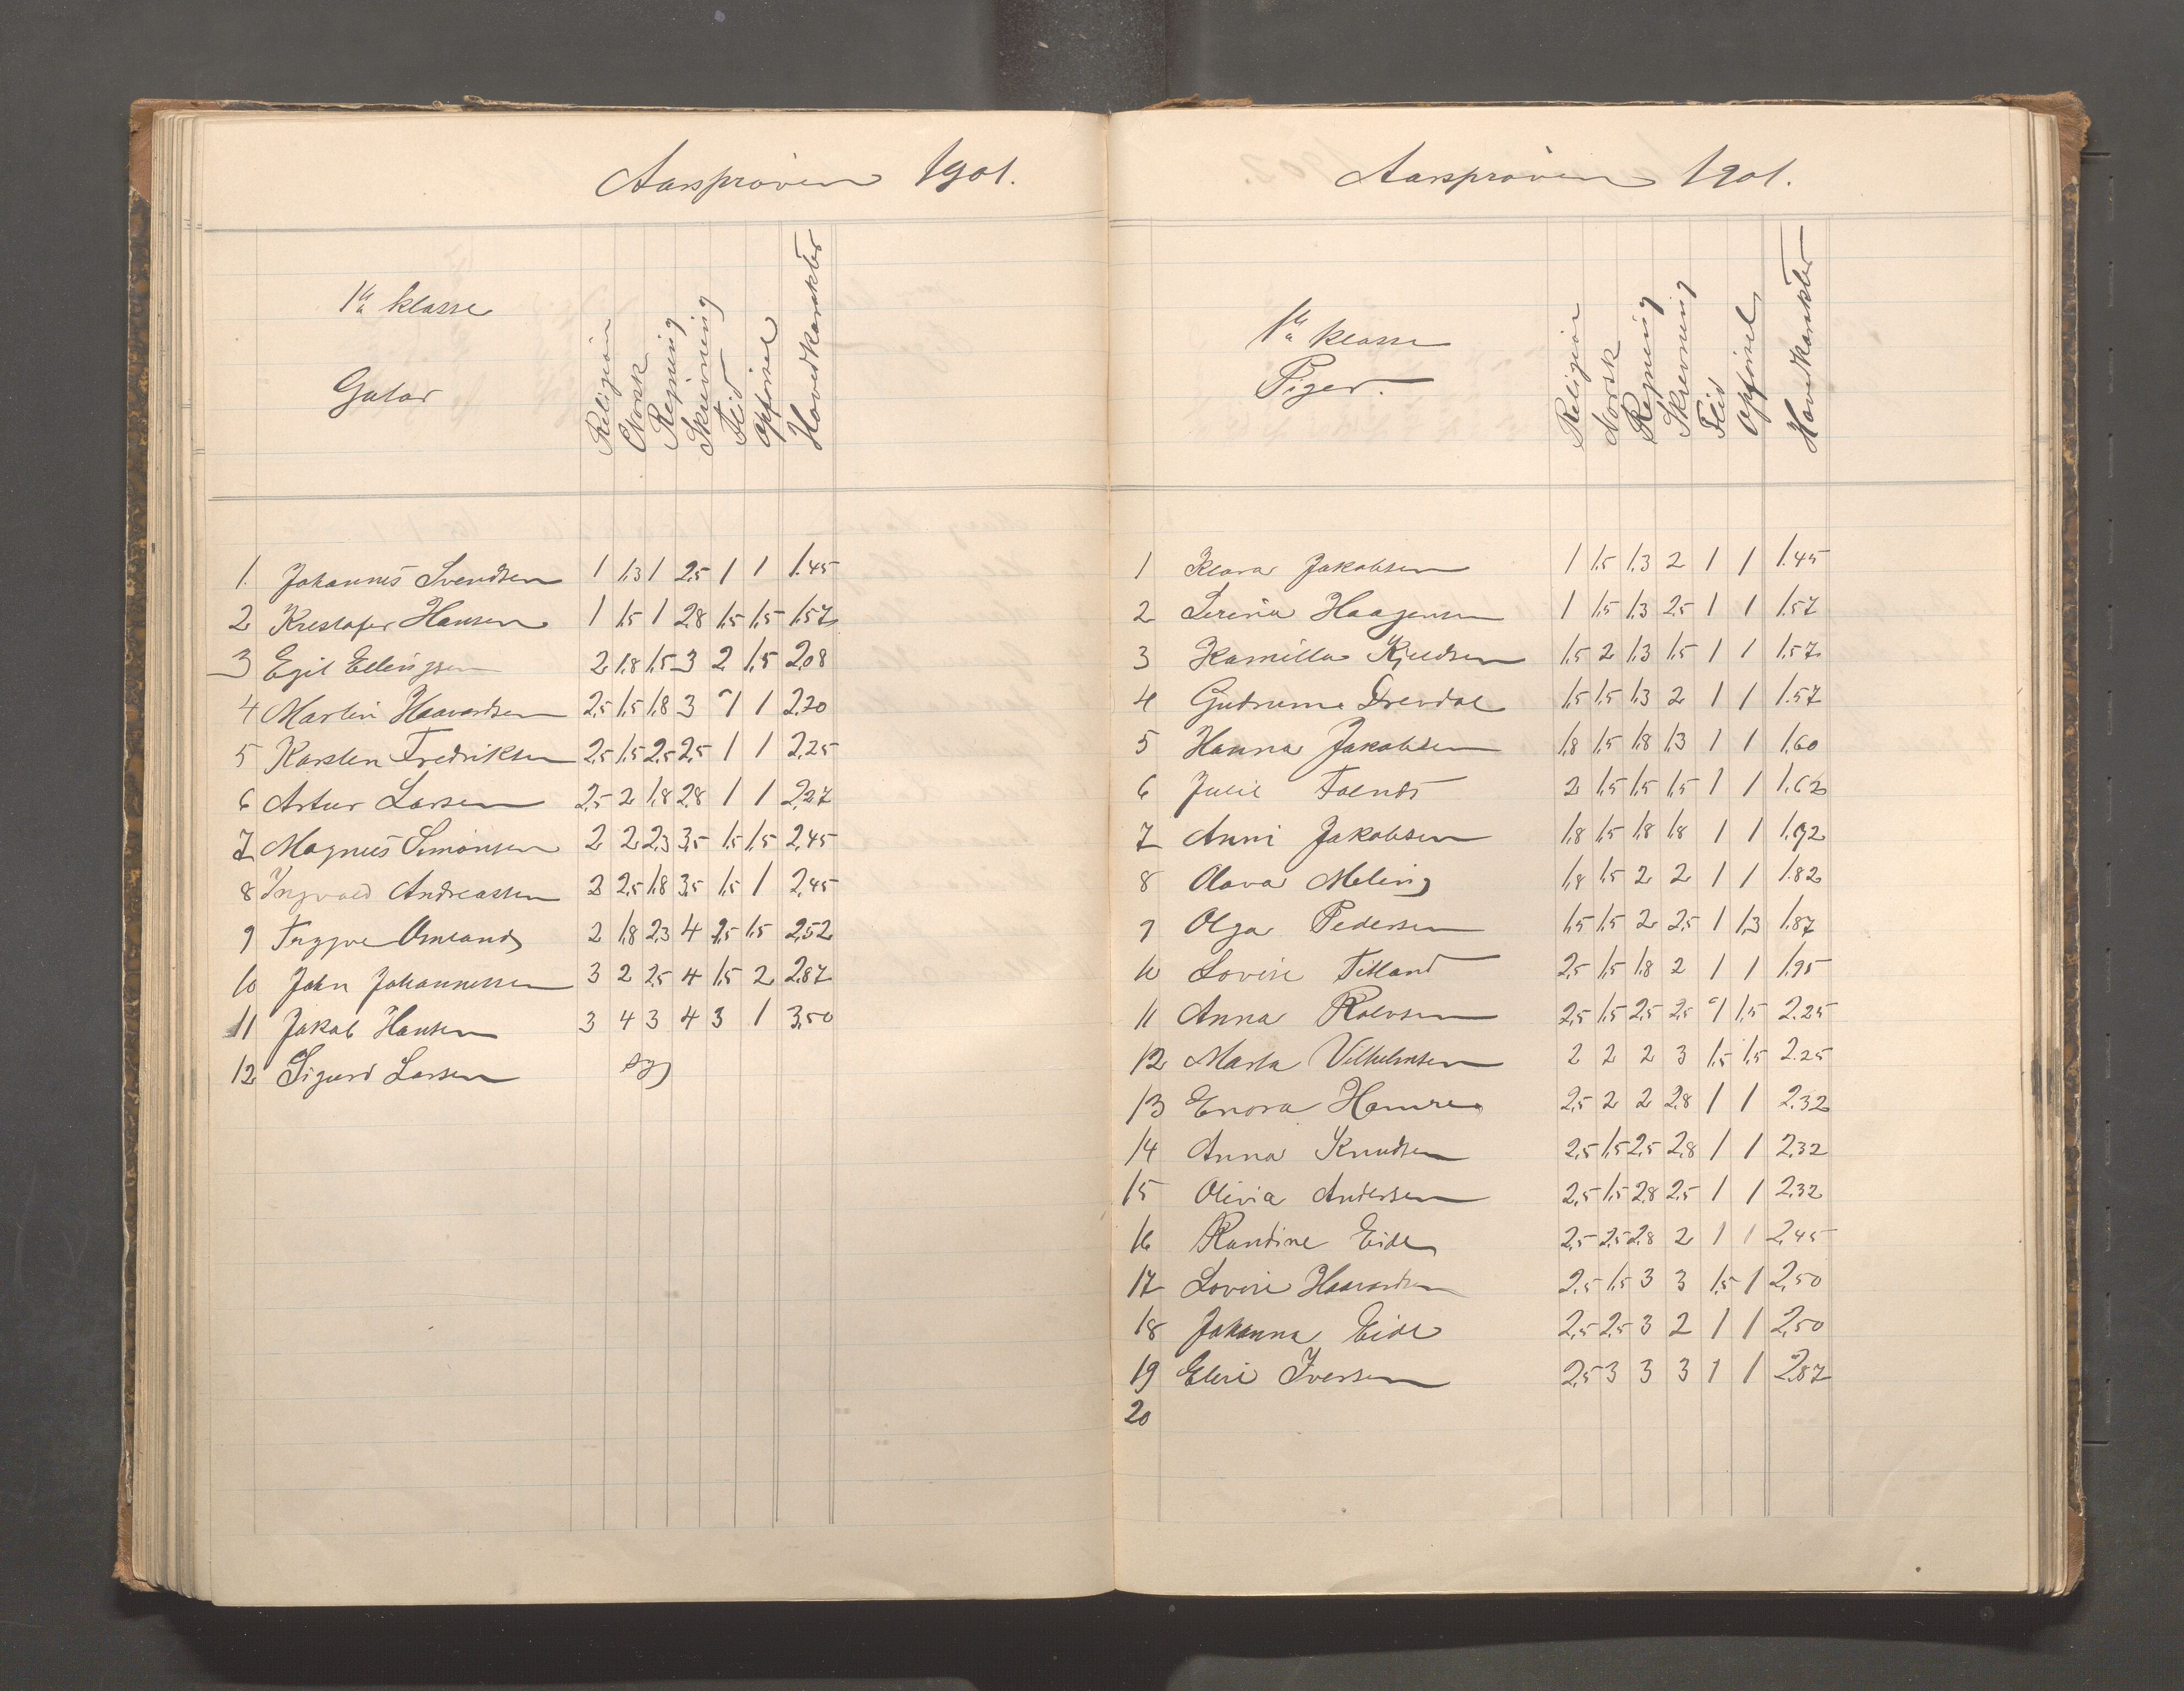 Aarsprøven 1901.
1ste klasse
Gutar
Religion
Norsk
Regning
Skrivning
Flid
Opførsel
Hovedkarakter
1. Johannes Svendsen 1 1,3 1 2,5 1 1 1.45
2 Kristofer Hansen 1 1,5 1 2,8 1,5 1,5 1,57
3 Egil Ellingsen 2 1,8 1,5 3 2 1,5 2,08
4 Martin Haavardsen 2,5 1,5 1,8 3 1 1 2,20
5 Karsten Fredriksen 2,5 1,5 2,5 2,5 1 1 2,25
6 Artur Larsen 2,5 2 1,8 2,8 1 1 2,27
7 Magnus Simonsen 2 2 2,3 3,5 1,5 1,5 2,45
8 Ingvald Andreassen 2 2,5 1,8 3,5 1,5 1 2,45
9 Trygve Omland 2 1,8 2,3 4 2,5 1,5 2,52
10 John Johannessen 3 2 2,5 4 1,5 2 2,87
11 Jakob Hansen 3 4 3 4 3 1 3,50
12 Sigurd Larsen syg
Aarsprøven 1901.
1ste klasse
Piger.
Religion
Norsk
Regning
Skrivning
Flid
Opførsel
Hovedkarakter
1 Klara Jakobsen 1 1,5 1,3 2 1 1 1.45
2 Serina Haagensen 1 1,5 1,3 2,5 1 1 1,57
3 Kamilla Kjeldsen 1,5 2 1,3 1,5 1 1 1,57
4 Gudrun Drevdal 1,5 1,5 1,3 2 1 1 1.57
5 Hanna Jakobsen 1,8 1,5 1,8 1,3 1 1 1,60
6 Julie 2 1,5 1,5 1,5 1 1 1,62
7 Anni Jakobsen 1,8 1,5 1,8 1,8 1 1 1,72
8 Olava Meling 1,8 1,5 2 2 1 1 1.82
9 Olga Pedersen 1,5 1,5 2 2,5 1 1,3 1,87
10 Lovise Titland 2,5 1,5 1,8 2 1 1 1,95
11 Anna Rolvsen 2,5 1,5 2,5 2,5 1 1,5 2.25
12 Marta Vilhelmsen 2 2 2 3 1,5 1,5 2.25
13 Enora Hamre 2,5 2 2 2,8 1 1 2.32
14 Anna Knudsen 2,5 1,5 2,5 2,8 1 1 2,32
15 Olivia Andersen 2,5 1,5 2,8 2,5 1 1 2,32
16 Randine Eide 2,5 2,5 2,8 2 1 1 2,45
17 Lovise Haavardsen 2,5 1,5 3 3 1,5 1 2,50
18 Johanna Eide 2,5 2,5 3 2 1 1 2,50
19 Elise Iversen 2,5 3 3 3 1 1 2,87
20